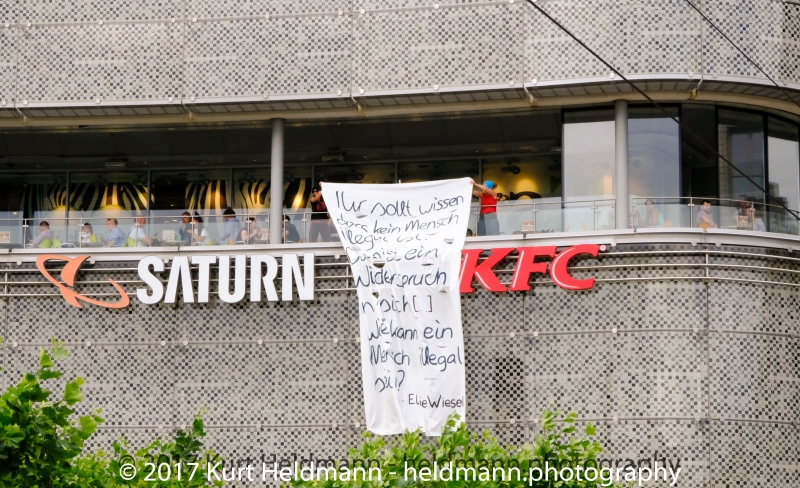 Ihr sollt wissen
dass kein Mensch
illegal ist.
Das ist ein
Widerspruch
in sich [.]
Wie kann ein
Mensch illegal
sein?
Elie Wiesel
SATURN
KFC
© 2017 Kurt Heldmann - heldmann.photography